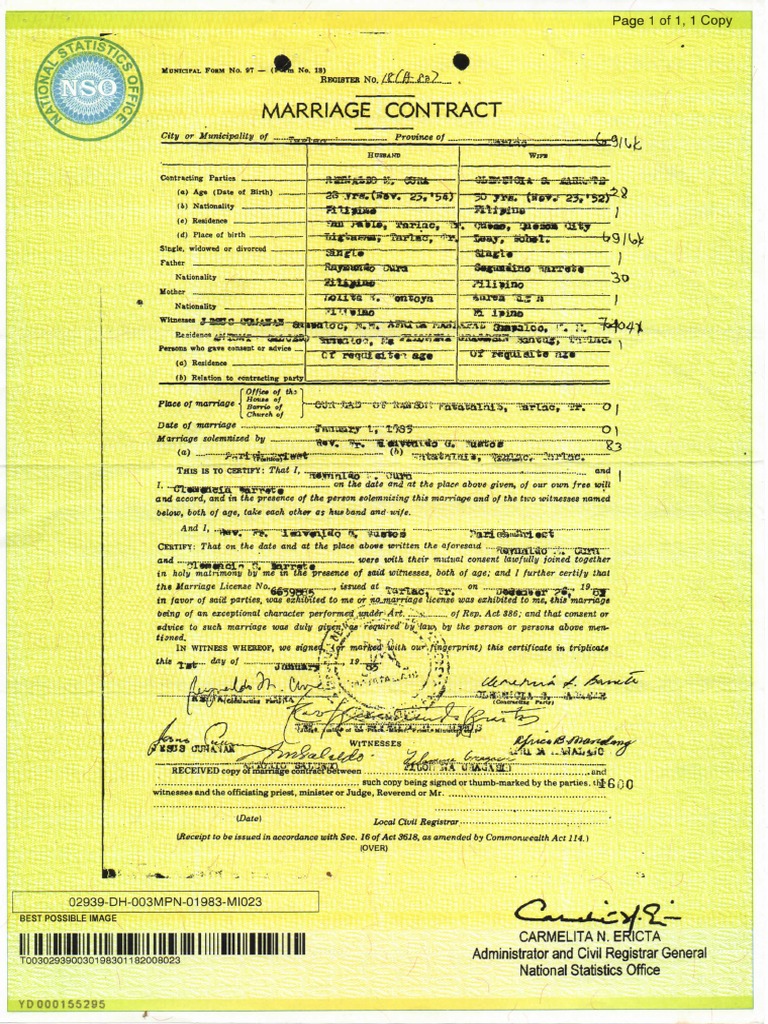 Page 1 of 1, 1 Copy
NATIONAL STATISTICS OFFICE
NSO
MUNICIPAL FORM NO. 97 — (Form No. 13)
REGISTER NO.
MARRIAGE CONTRACT
City or Municipality of Province of
HUSBAND WIFE
Contracting Parties REYNALDO M. CURA CLEMENCIA S. BARRETE
(a) Age (Date of Birth) 28 yrs. (Nov. 23, '54) 30 yrs. (Nov. 23, '52) 28
(b) Nationality Filipino Filipino 1
(c) Residence San Pablo, Tarlac, Tr. Cubao, Quezon City
(d) Place of birth Tarlac, Tr. Loay, Bohol. 6916k
Single, widowed or divorced Single Single 1
Father Raymundo Cura Segundino Barrete
Nationality Filipino Filipino 30
Mother Lolita
Nationality Filipino Filipino 1
Witnesses JESUS CUNANAN Sampaloc, M.M. Sampaloc, M. M.
Residence Sampaloc, Tarlac. 1
Persons who gave consent or advice Of requisite age Of requisite age
(a) Residence
(b) Relation to contracting party
Place of marriage Office of the House of Barrio of Church of OUR LADY OF RANSOM Matatalaib, Tarlac, Tr. 01
Date of marriage January 1, 1983 01
Marriage solemnized by Rev. Fr. Bienvenido G. Bustos 83
(a) Parish Priest (b) Matatalaib, Tarlac, Tarlac.
(Position) (Address)
THIS IS TO CERTIFY: That I, Reynaldo M. Cura and 1
I, Clemencia Barrete on the date and at the place above given, of our own free will
and accord, and in the presence of the person solemnizing this marriage and of the two witnesses named
below, both of age, take each other as husband and wife.
And I, Rev. Fr. Bienvenido G. Bustos Parish Priest
CERTIFY: That on the date and at the place above written the aforesaid Reynaldo M. Cura
and Clemencia S. Barrete were with their mutual consent lawfully joined together
in holy matrimony by me in the presence of said witnesses, both of age; and I further certify that
the Marriage License No. issued at Tarlac, Tr. on December 19
in favor of said parties, was exhibited to me or no marriage license was exhibited to me, this marriage
being of an exceptional character performed under Art. of Rep. Act 386; and that consent or
advice to such marriage was duly given, as required by law, by the person or persons above men-
tioned.
IN WITNESS WHEREOF, we signed (or marked with our fingerprint) this certificate in triplicate
this 1st day of January 19 83
Reynaldo M. Cura
(Contracting Party) (Contracting Party)
WITNESSES
JESUS CUNANAN
RECEIVED copy of marriage contract between and
such copy being signed or thumb-marked by the parties, the 1600
witnesses and the officiating priest, minister or Judge, Reverend or Mr.
(Date) Local Civil Registrar
(Receipt to be issued in accordance with Sec. 16 of Act 3618, as amended by Commonwealth Act 114.)
(OVER)
02939-DH-003MPN-01983-MI023
BEST POSSIBLE IMAGE
T003029390030198301182008023
CARMELITA N. ERICTA
Administrator and Civil Registrar General
National Statistics Office
YD000155295